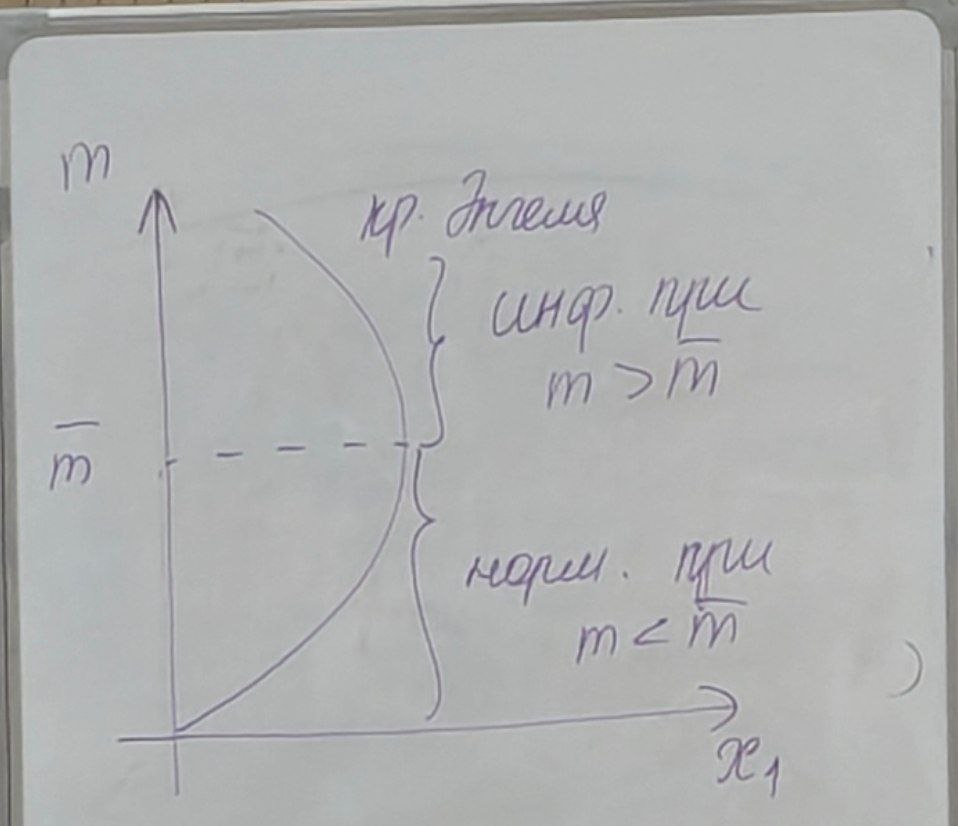 m
кр. Энгеля
инф. при
m > m̅
m̅
норм. при
m < m̅
x₁